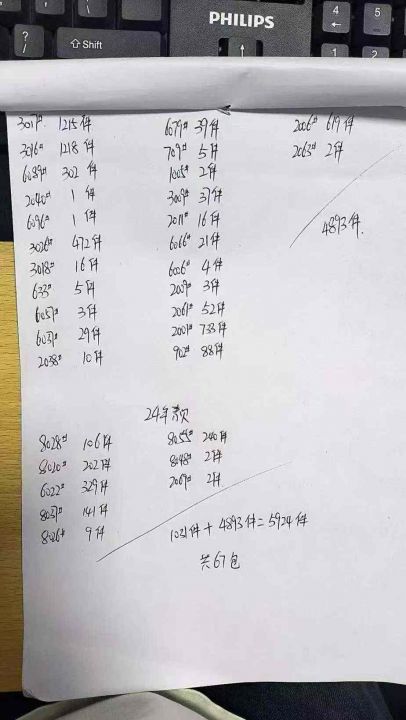 PHILIPS
?
/
⇧Shift
4
5
1
2
3017# 1215件
3016# 1218件
6089# 302件
2040# 1件
6096# 1件
3026# 472件
3018# 16件
633# 5件
6051# 3件
6031# 29件
2038# 10件
6079# 39件
709# 5件
1005# 2件
3009# 37件
2011# 16件
6066# 21件
6006# 4件
2009# 3件
2061# 52件
2001# 733件
902# 88件
2006# 619件
2063# 2件
4893件.
24年款
8028# 106件
8020# 202件
6022# 329件
8031# 141件
8026# 9件
8055# 240件
8048# 2件
2069# 2件
1031件+4893件=5924件
共67包